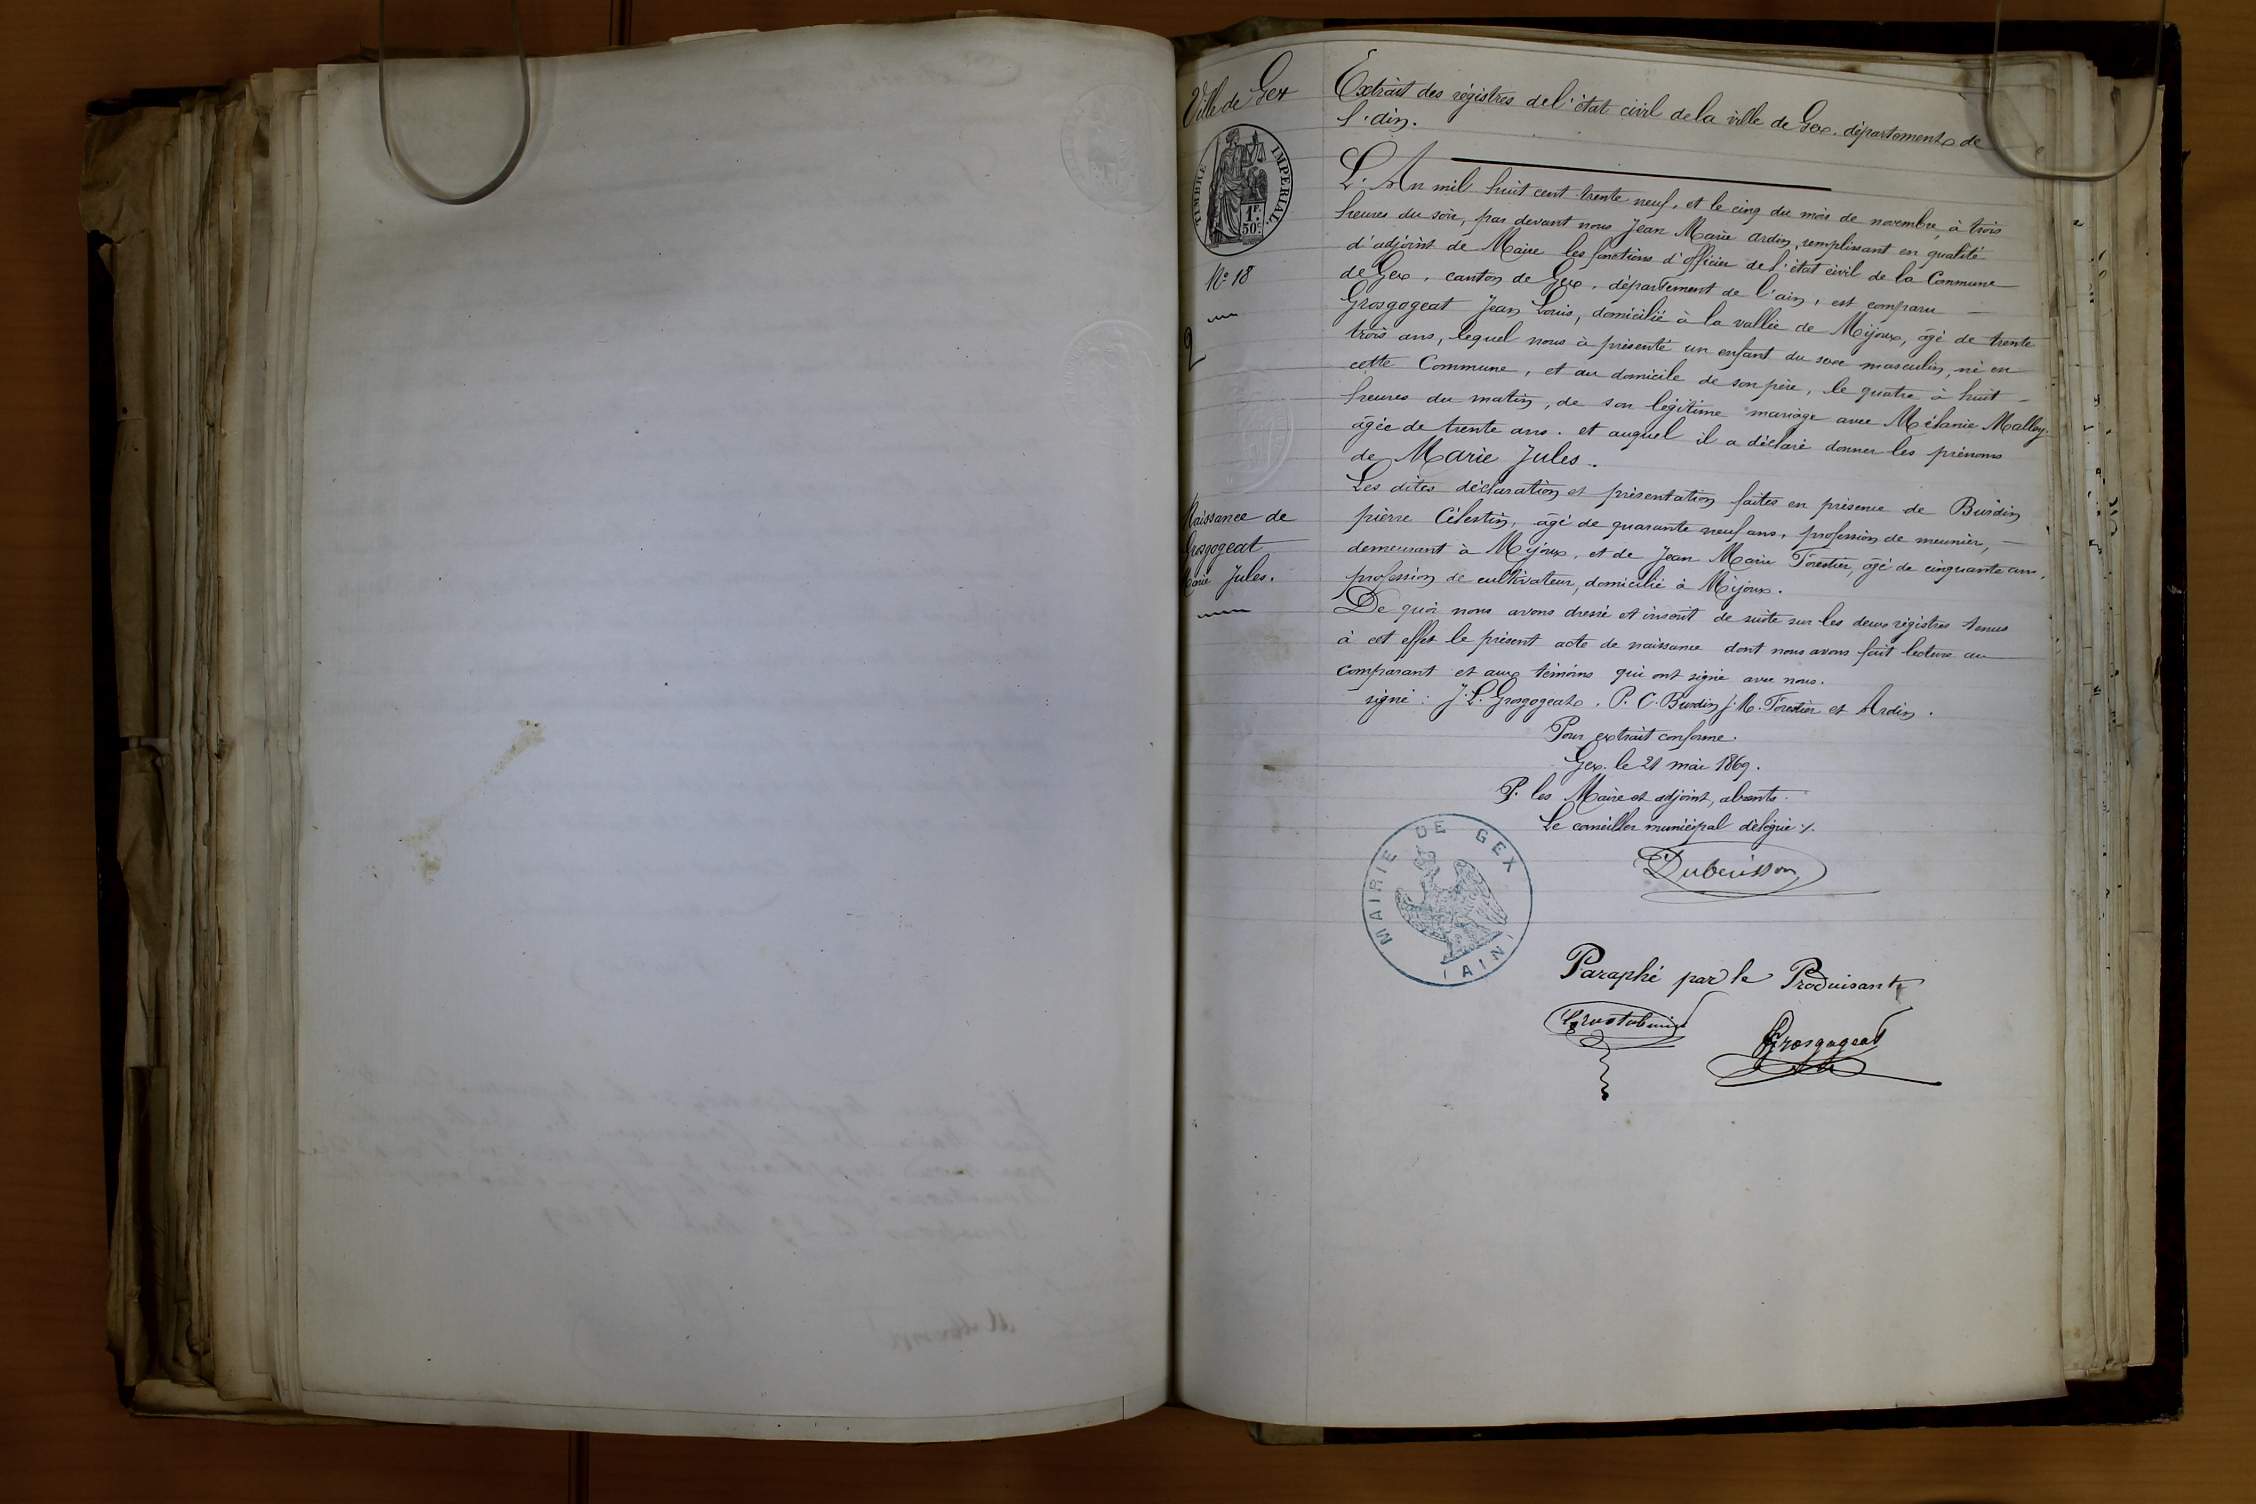 Ville de Gex
TIMBRE IMPERIAL.
1F.
50c.
No 18
2
Naissance de
Grosgogeat
Marie Jules.
Extrait des régistres de l'état civil de la ville de Gex. département de
l'ain.
L'An mil huit cent trente neuf, et le cinq du mois de novembre, à trois
heures du soir, par devant nous Jean Marie Ardin, remplissant en qualité
d'adjoint de Maire les fonctions d'officier de l'état civil de la Commune
de Gex, canton de Gex, département de l'ain, est comparu —
Grosgogeat Jean Louis, domicilié à la vallée de Mijoux, âgé de trente
trois ans, lequel nous à présenté un enfant du sexe masculin, né en
cette Commune, et au domicile de son père, le quatre à huit —
heures du matin, de son légitime mariage avec Mélanie Malley
âgée de trente ans. et auquel il a déclaré donner les prénoms
de Marie Jules.
Les dites déclaration et présentation faites en présence de Burdin
pierre Célestin, âgé de quarante neuf ans, profession de meunier, —
demeurant à Mijoux, et de Jean Marie Forestier, âgé de cinquante ans,
profession de cultivateur, domicilié à Mijoux.
De quoi nous avons dressé et inscrit de suite sur les deux régistres tenus
à cet effet le présent acte de naissance dont nous avons fait lecture au
comparant et aux témoins qui ont signé avec nous.
signé: J. L. Grosgogeat, P. C. Burdin, J. M. Forestier et Ardin.
Pour extrait conforme.
Gex. le 21 mai 1869.
P. les Maire et adjoint, absents.
Le conseiller municipal délégué
Dubuisson
MAIRIE DE GEX
(AIN)
Paraphé par le Produisant
Grosgogeat